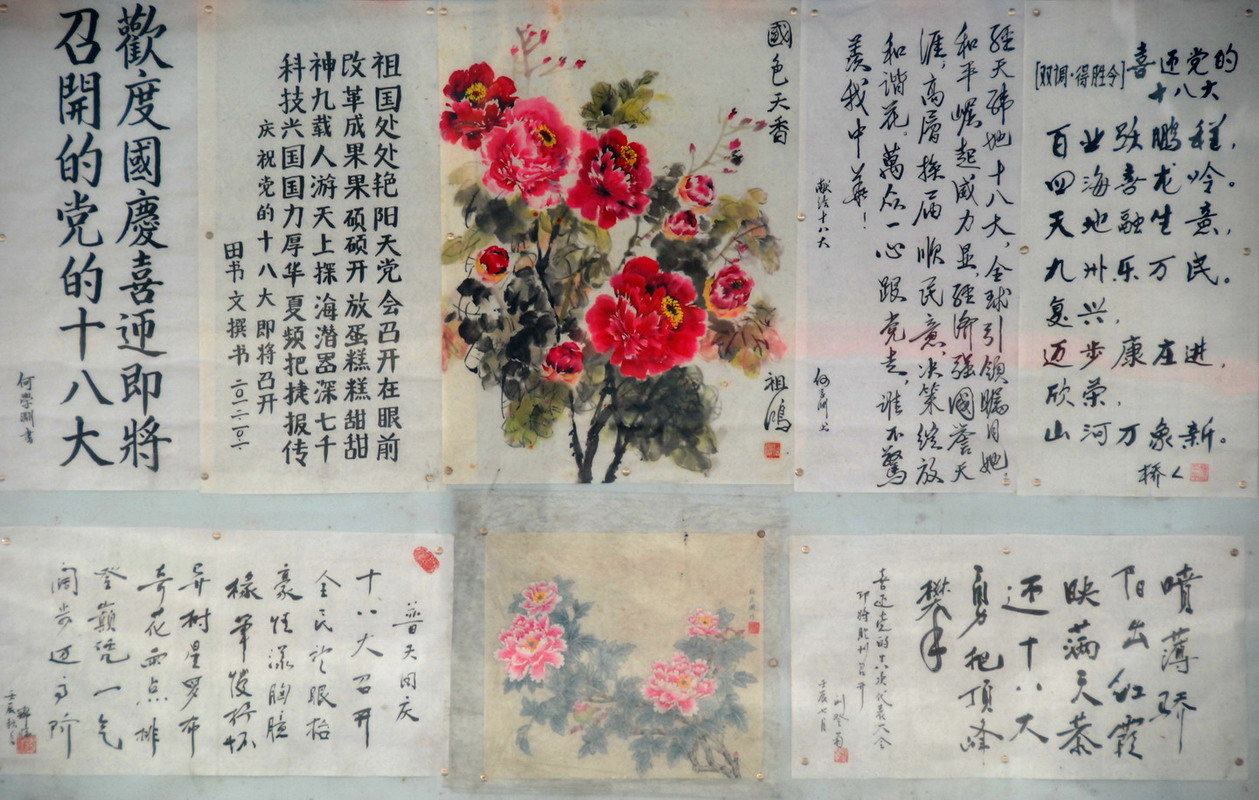 歡度國慶喜迎即將
召開的党的十八大
何學渊書
祖国处处艳阳天党会召开在眼前
改革成果果硕硕开放蛋糕糕甜甜
神九载人游天上探海潜器深七千
科技兴国国力厚华夏频把捷报传
庆祝党的十八大即将召开
田书文撰书
國色天香
祖鴻
经天纬地十八大,全球引领瞩目她。
和平崛起威力显,经济强國誉天
涯,高層换届顺民意,决策绽放
和谐花。萬众一心跟党走,谁不驚
羡我中華!
献给十八大
喜迎党的
十八大
[双调·得胜令]
百业跃鹏程,
四海喜龙吟。
天地融生意,
九州乐万民。
复兴,
迈步康庄进,
欣荣,
山河万象新。
桥人
普天同庆
十八大召开
全民企眼抬
豪情漾胸臆
椽笔慢抒怀
异树星罗布
奇花面点排
登巅凭一气
阔步迈高阶
喷薄骄
阳出红霞
映满天恭
迎十八大
勇把顶峰
攀
喜迎党的十八次代表大会
即将胜利召开
壬辰七月